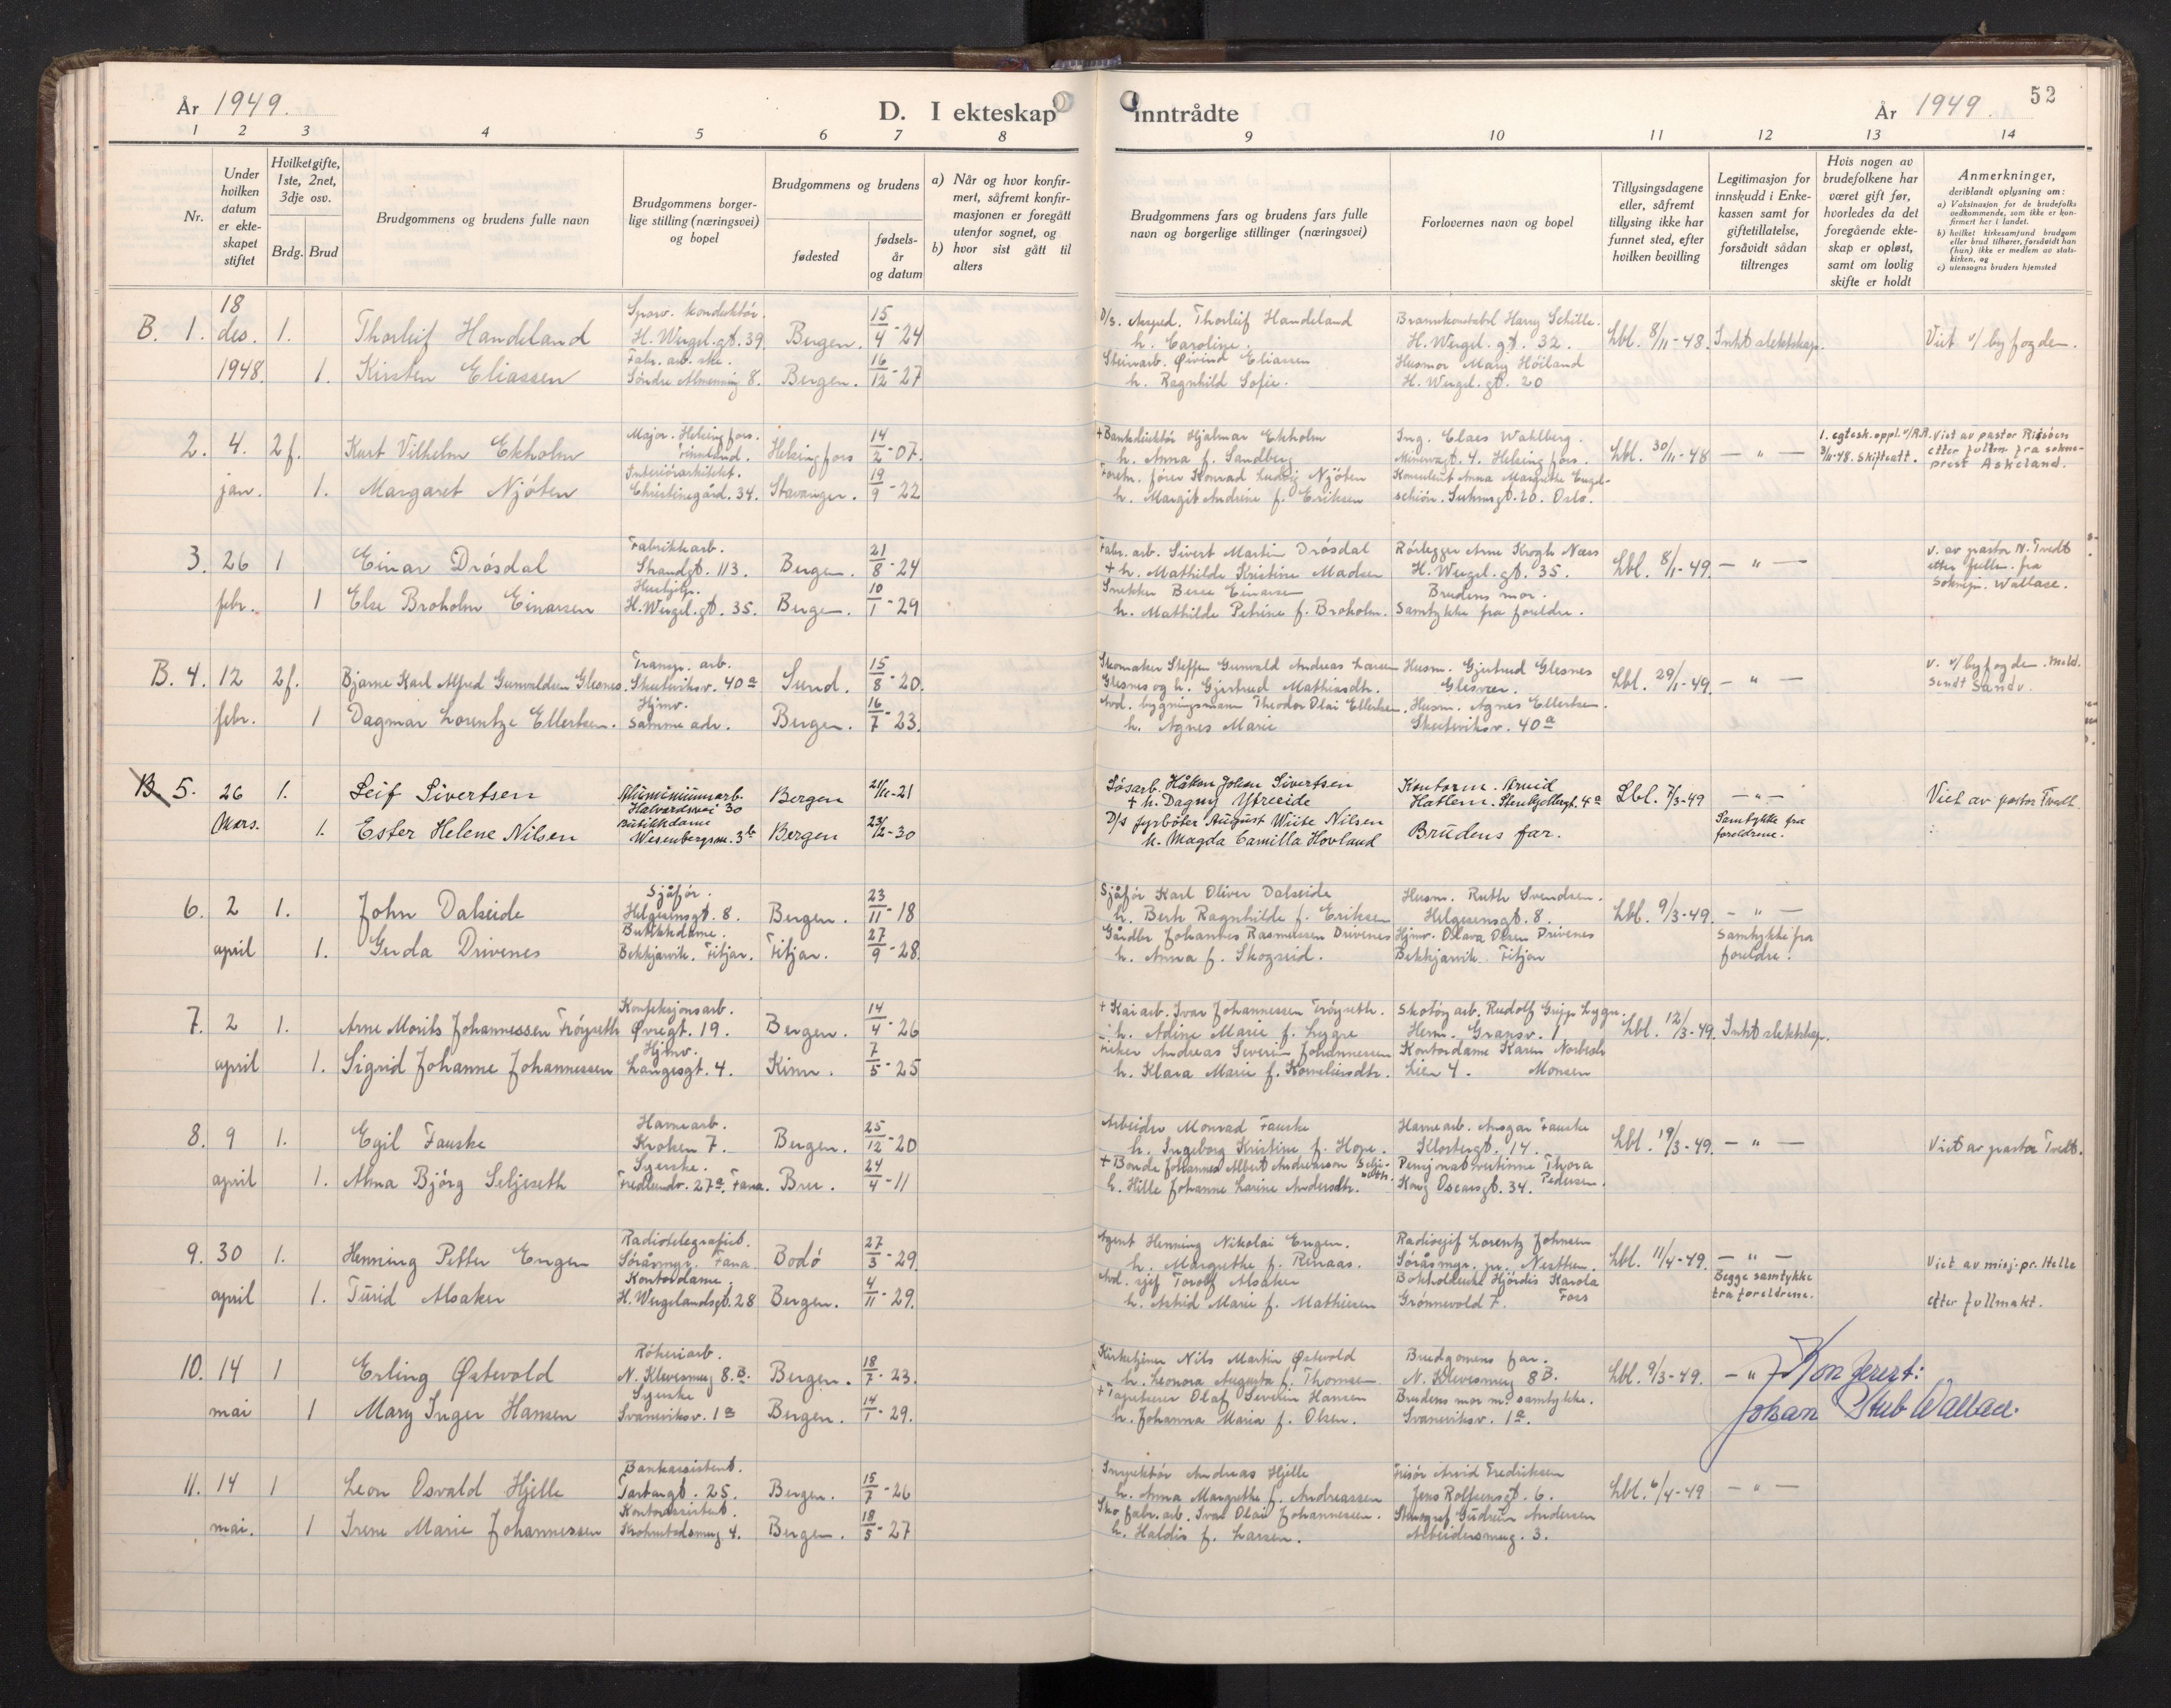 År 1949.
D. I ekteskap inntrådte
År 1949.
52
1 2 3 4 5 6 7 8 9 10 11 12 13 14
Nr.
Under hvilken datum er ekteskapet stiftet
Hvilket gifte, 1ste, 2net, 3dje osv.
Brdg. Brud
Brudgommens og brudens fulle navn
Brudgommens borgerlige stilling (næringsvei) og bopel
Brudgommens og brudens
fødested
fødselsår og datum
a) Når og hvor konfirmert, såfremt konfirmasjonen er foregått utenfor sognet, og
b) hvor sist gått til alters
Brudgommens fars og brudens fars fulle navn og borgerlige stillinger (næringsvei)
Forlovernes navn og bopel
Tillysingsdagene eller, såfremt tillysing ikke har funnet sted, efter hvilken bevilling
Legitimasjon for innskudd i Enkekassen samt for giftetillatelse, forsåvidt sådan tiltrenges
Hvis nogen av brudefolkene har været gift før, hvorledes da det foregående ekteskap er opløst, samt om lovlig skifte er holdt
Anmerkninger, deriblandt oplysning om:
a) Vaksinasjon for de brudefolks vedkommende, som ikke er konfirmert her i landet.
b) hvilket kirkesamfund brudgom eller brud tilhører, forsåvidt han (hun) ikke er medlem av statskirken, og
c) utensogns bruders hjemsted
B. 1. 18 des. 1948. 1. Thorleif Handeland
Sporv. konduktør. H. Wergel.gt. 39. Bergen. 15/4-24
D/s. Thorleif Handeland
h. Caroline.
Brannkonstabel Harry Schille. H. Wergel. gt. 32.
Lbl. 8/11-48. Intet slektskap. Viet v/ byfogden.
1. Kirsten Eliassen
Fabr. arb. ske. Søndre Almenning 8. Bergen. 16/12-27
Steinarb. Øivind Eliassen
h. Ragnhild Sofie.
Husmor Mary Höiland H. Wergel. gt. 20
2. 4. jan. 2f. Kurt Vilhelm Ekholm
Major. Helsingfors. Finnland. Helsingfors 14/2-07.
+ Bankdirektør Hjalmar Ekholm
h. Anna f. Sandberg
Ing. Claes Wahlberg. 4. Helsingfors.
Lbl. 30/11-48 — " —
1. egtesk. oppl. v/ R.R. 3/11-48. skiftatt.
Viet av pastor Risöen etter fullm. fra sokneprest Askeland.
1. Margaret Njöten
Interiörarkitekt. Christinegård. 34. Stavanger. 19/9-22
Konrad Ludvig Njöten
h. Margit Andrine f. Eriksen
Konsulent Anna Margrethe Engelschiön. Suhmsgt. 20. Oslo.
3. 26 febr. 1 Einar Drösdal
Fabrikkarb. Strandgt. 113. Bergen. 21/8-24
Fabr. arb. Sivert Martin Drösdal
+ h. Mathilde Kristine Madsen
Rörlegger Arne Krogh Næss H. Wergel. gt. 35.
Lbl. 8/11-49. — " —
v. av pastor N. Tvedt etter fullm. fra soknepr. Wallace.
1 Else Broholm Einarsen
Hushjelp. H. Wergel. gt. 35. Bergen. 10/1-29
Snekker Einarsen
h. Mathilde Petrine f. Broholm.
Brudens mor. Samtykke fra foreldre.
B. 4. 12 febr. 2f. Bjarne Karl Alfred Gunvaldsen Glesnes.
Transp. arb. Skuteviksv. 40a Sund. 15/8-20.
Skomaker Steffen Gunvald Andreas Larsen
Glesnes og h. Gjertrud Mathiasdtr.
Husm. Gjertrud Glesnes Glesvær.
Lbl. 29/1-49. — " —
v. v/ byfogden. Meld. sendt Sandv.
1 Dagmar Lorentze Ellertsen.
Hjmv. samme adr. Bergen. 16/7-23.
Avd. bygningsmann Theodor Olai Ellertsen.
h. Agnes Marie
Husm. Agnes Ellertsen. Skuteviksv. 40a
B. 5. 26 Mars. 1. Leif Sivertsen
Aluminiumarb. 30 Bergen 21/11-21
Løsarb. Håkon Johan Sivertsen
+ h. Dagny Ytreeide
Kontorm. Arvid Hatlem. Stenkjellergt. 4a
Lbl. 7/3-49 — " —
Viet av pastor Tvedt
1. Ester Helene Nilsen
Butikkdame Wesenbergsm. 3b Bergen 23/2-30
D/s fyrbøter August Wiite Nilsen
h. Magda Camilla Hovland
Brudens far.
Samtykke fra foreldrene.
6. 2 april 1. John Dalseide
Sjåför. Helgesensgt. 8. Bergen. 23/11-18
Sjåför Karl Oliver Dalseide
h. Berth Ragnhilde f. Eriksen
Husm. Ruth Svendsen. Helgesensgt. 8.
Lbl. 9/3-49. — " —
1. Gerda Drivenes
Butikkdame. Bekkjarvik. Fitjar. Fitjar. 27/9-28.
Gårdbr. Johannes Rasmussen Drivenes
h. Anna f. Skogseid.
Hjmv. Olava Olsen Drivenes Bekkjarvik. Fitjar
Samtykke fra foreldre.
7. 2 april 1. Arne Morits Johannessen Fröyseth
Konfeksjonsarb. Øvregt. 19. Bergen. 14/4-26
+ Kaiarb. Ivar Johannessen Fröyseth.
h. Adine Marie f. Lygre
Skotøyarb. Rudolf Lygre Herm. Gransv. 1
Lbl. 12/3-49. Intet slektskap.
1. Sigrid Johanne Johannessen
Hjmv. Langesgt. 4. Kinn. 7/5-25
Fisker Andreas Severin Johannessen
h. Klara Marie f. Korneliusdtr.
Kontordame Karen Monsen Lien 4.
8. 9 april 1. Egil Fauske
Havnearb. Kroken 7. Bergen. 25/12-20
Arbeider Monrad Fauske
h. Ingeborg Kristine f. Hope.
Havnearb. Ansgar Fauske Klostergt. 14.
Lbl. 19/3-49. — " —
Viet av pastor Tvedt.
1. Alma Bjørg Seljeseth
Syerske. Fredlundv. 27a. Fana. Bru. 24/4-11
+ Bonde Johannes Albert Andreasson Seljeseth.
h. Hille Johanne Larine Andersdtr.
Pensjonatvertinne Thora Pedersen. Kong Oscarsgt. 34.
9. 30 april 1. Henning Petter Engen
Radiotelegrafist. Søråsmyr. Fana. Bodö 27/3-29.
Agent Henning Nikolai Engen.
h. Margrethe f. Rinaas.
Radiosjef Lorentz Johnsen Søråsmyr. pr. Nesttun.
Lbl. 11/4-49. — " —
Viet av misj.pr. Helle
1. Turid Alsaker
Kontordame. H. Wergelandsgt. 28 Bergen. 4/11-29.
Avd. sjef Torolf Alsaker
h. Astrid Marie f. Mathiesen
Bokholderske Hjördis Karola Foss Grønnevold 7.
Begge samtykke fra foreldrene.
etter fullmakt.
10. 14 mai 1 Erling Østevold
Rökeriarb. N. Klevesmug 8.B. Bergen. 18/7-23.
Kirketjener Nils Martin Østevold
h. Leonora Augusta f. Thomsen
Brudgomens far. N. Klevesmug 8B.
Lbl. 9/3-49. — " —
Konferert:
Johan Stub Wallace.
1 Mary Inger Hansen
Syerske Svaneviksv. 1a Bergen. 14/1-29.
+ Tapetserer Olaf Severin Hansen
h. Johanna Maria f. Olsen.
Brudens mor m. samtykke. Svaneviksv. 1a.
11. 14 mai. 1 Leon Osvald Hjelle
Bankassistent. Tartargt. 25. Bergen. 15/7-26
Inspektör Andreas Hjelle
h. Anna Margrethe f. Andreassen
Frisör Arvid Fredriksen Jens Rolfsensgt. 6.
Lbl. 6/4-49 — " —
1 Irene Marie Johannessen
Kontorassistent. Krohnstedsmug 4. Bergen. 18/5-27
Sko fabr. arb. Ivar Olai Johannessen.
h. Haldis f. Larsen.
Stenograf Gudrun Andersen Arbeidersmug. 3.